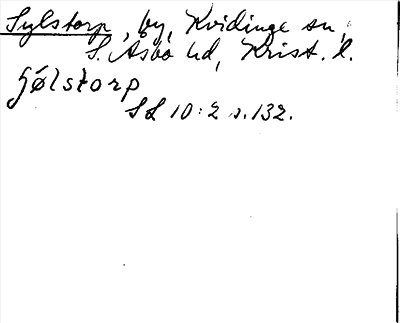 Sylstorp, by, Kvidinge sn,
S. Åsbo hd, Krist. l.
sjølstorp
SL 10:2 s.132.